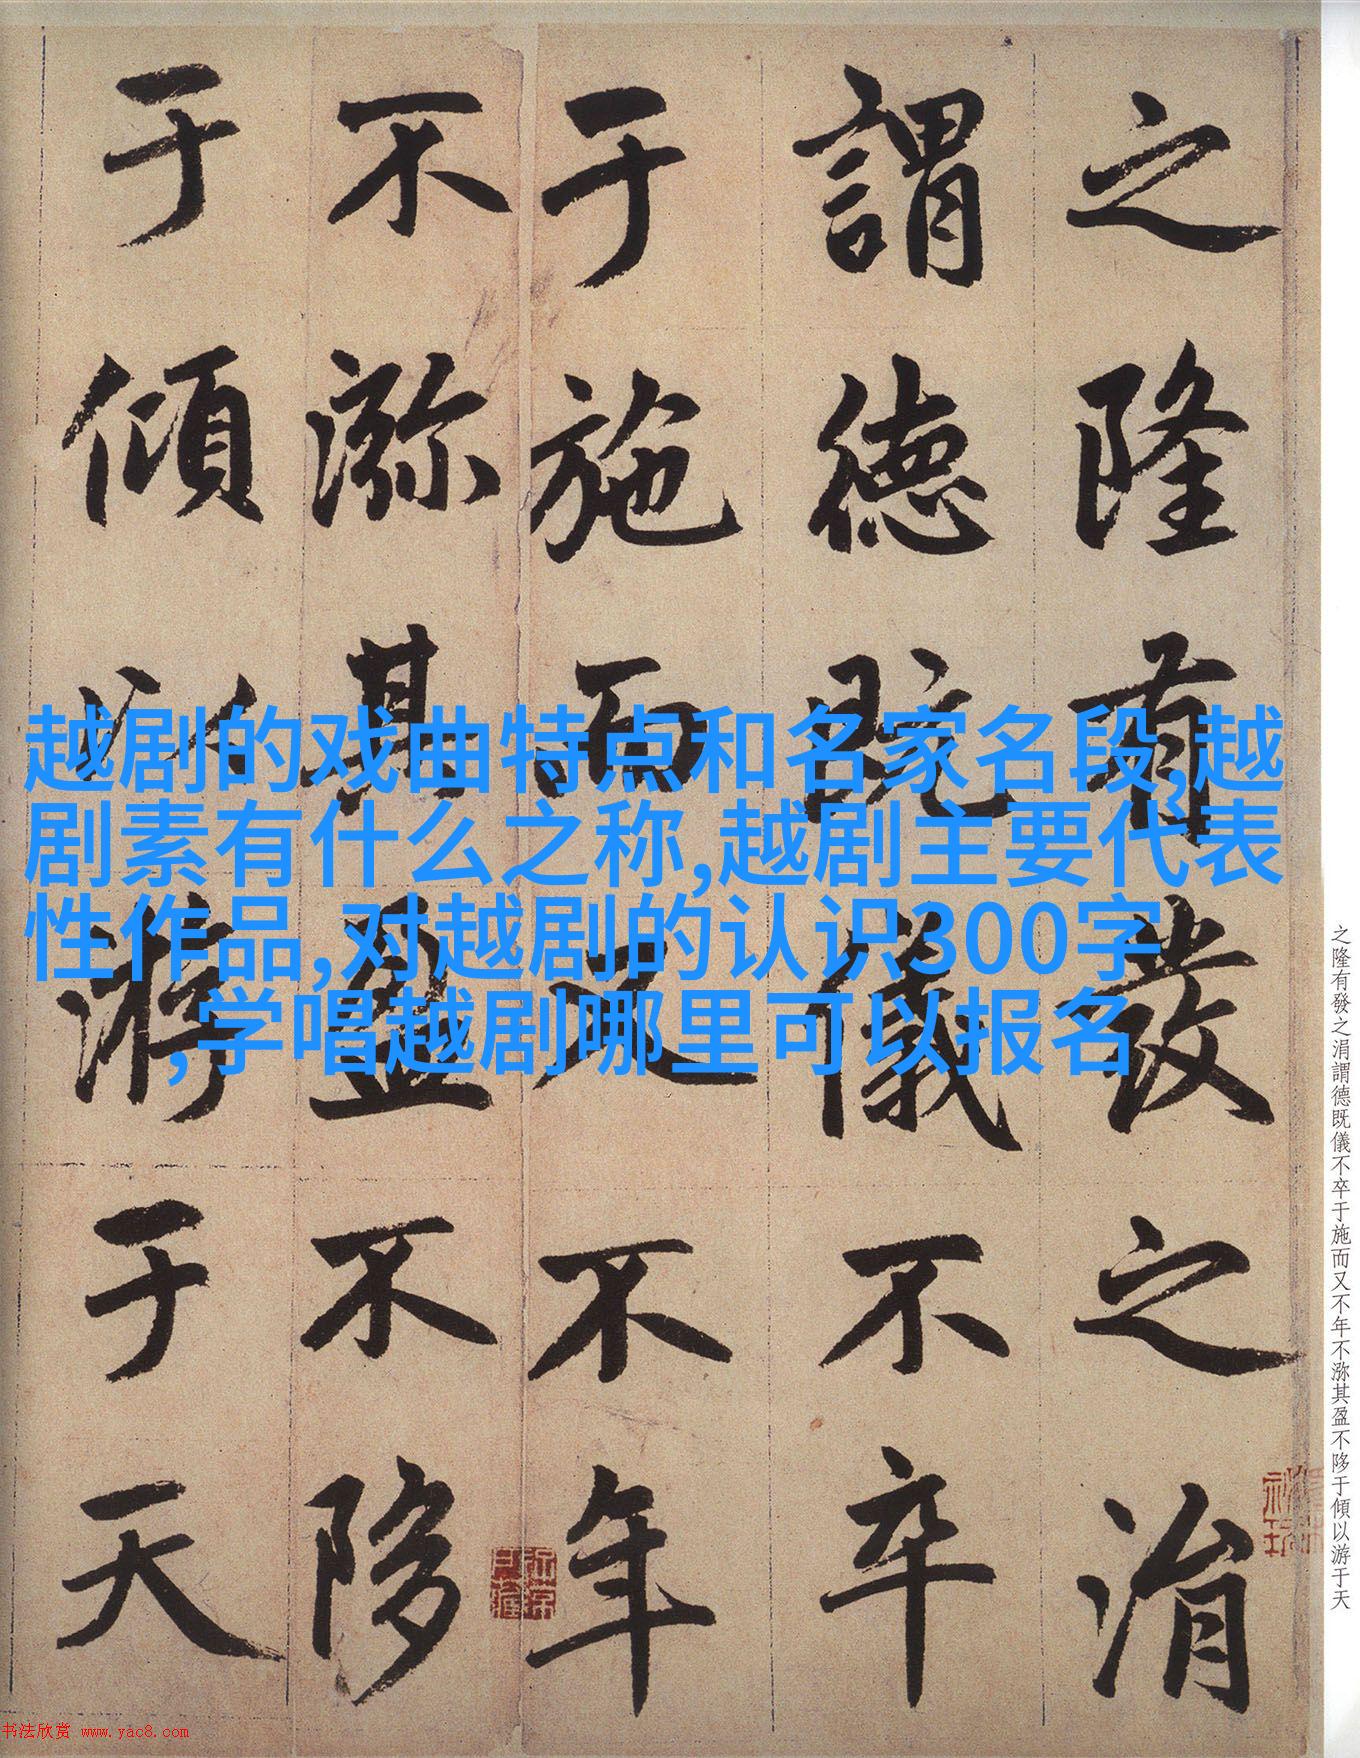 之隆有發之涓
謂德既儀不卒
于施而又不年
不㳽其盈不陊
于傾以游于天
越剧的戏曲特点和名家名段,越
剧素有什么之称,越剧主要代表
性作品,对越剧的认识300字
,学唱越剧哪里可以报名
之隆有發之涓謂德既儀不卒于施而又不年不㳽其盈不陊于傾以游于天
书法欣赏 www.yac8.com